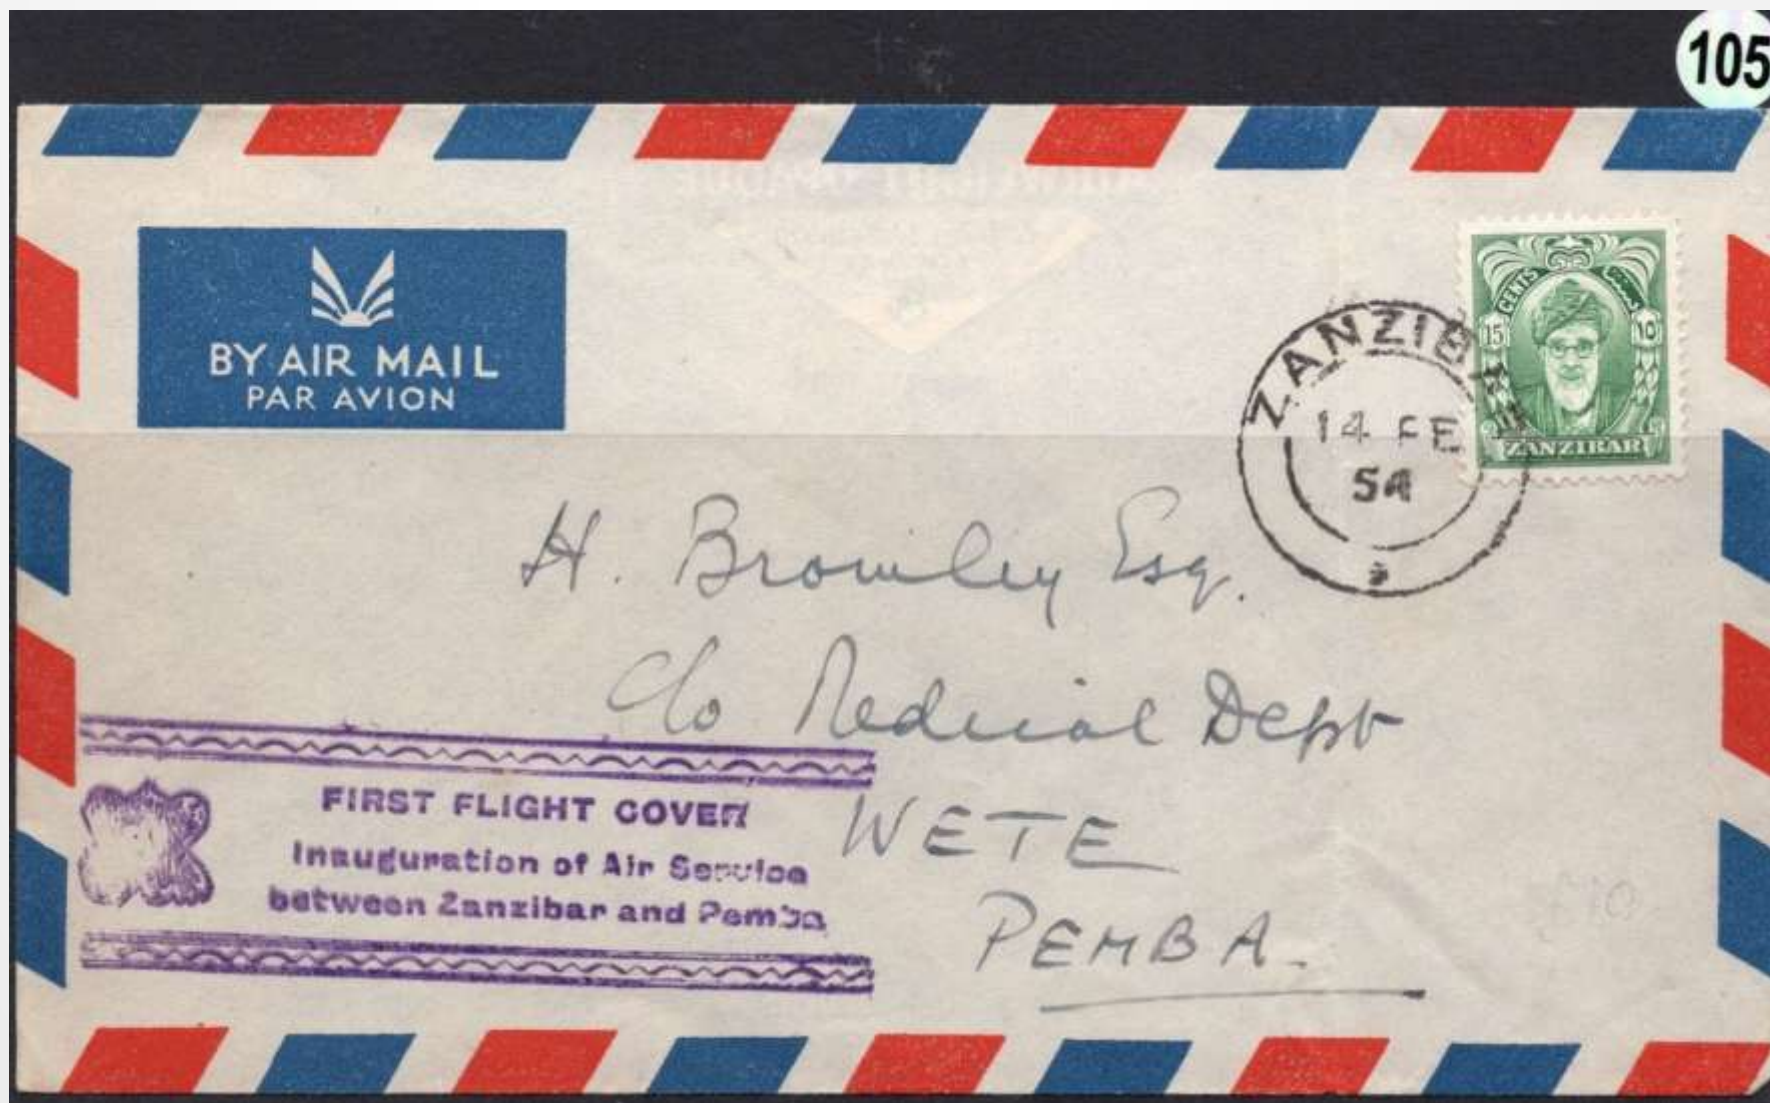 105
BY AIR MAIL
PAR AVION
CENTS
15 ١٥
ZANZIBAR
ZANZIBAR
14 FE
54
H. Bromley Esq.
c/o Medical Dept
WETE
PEMBA
FIRST FLIGHT COVER
Inauguration of Air Service
between Zanzibar and Pemba